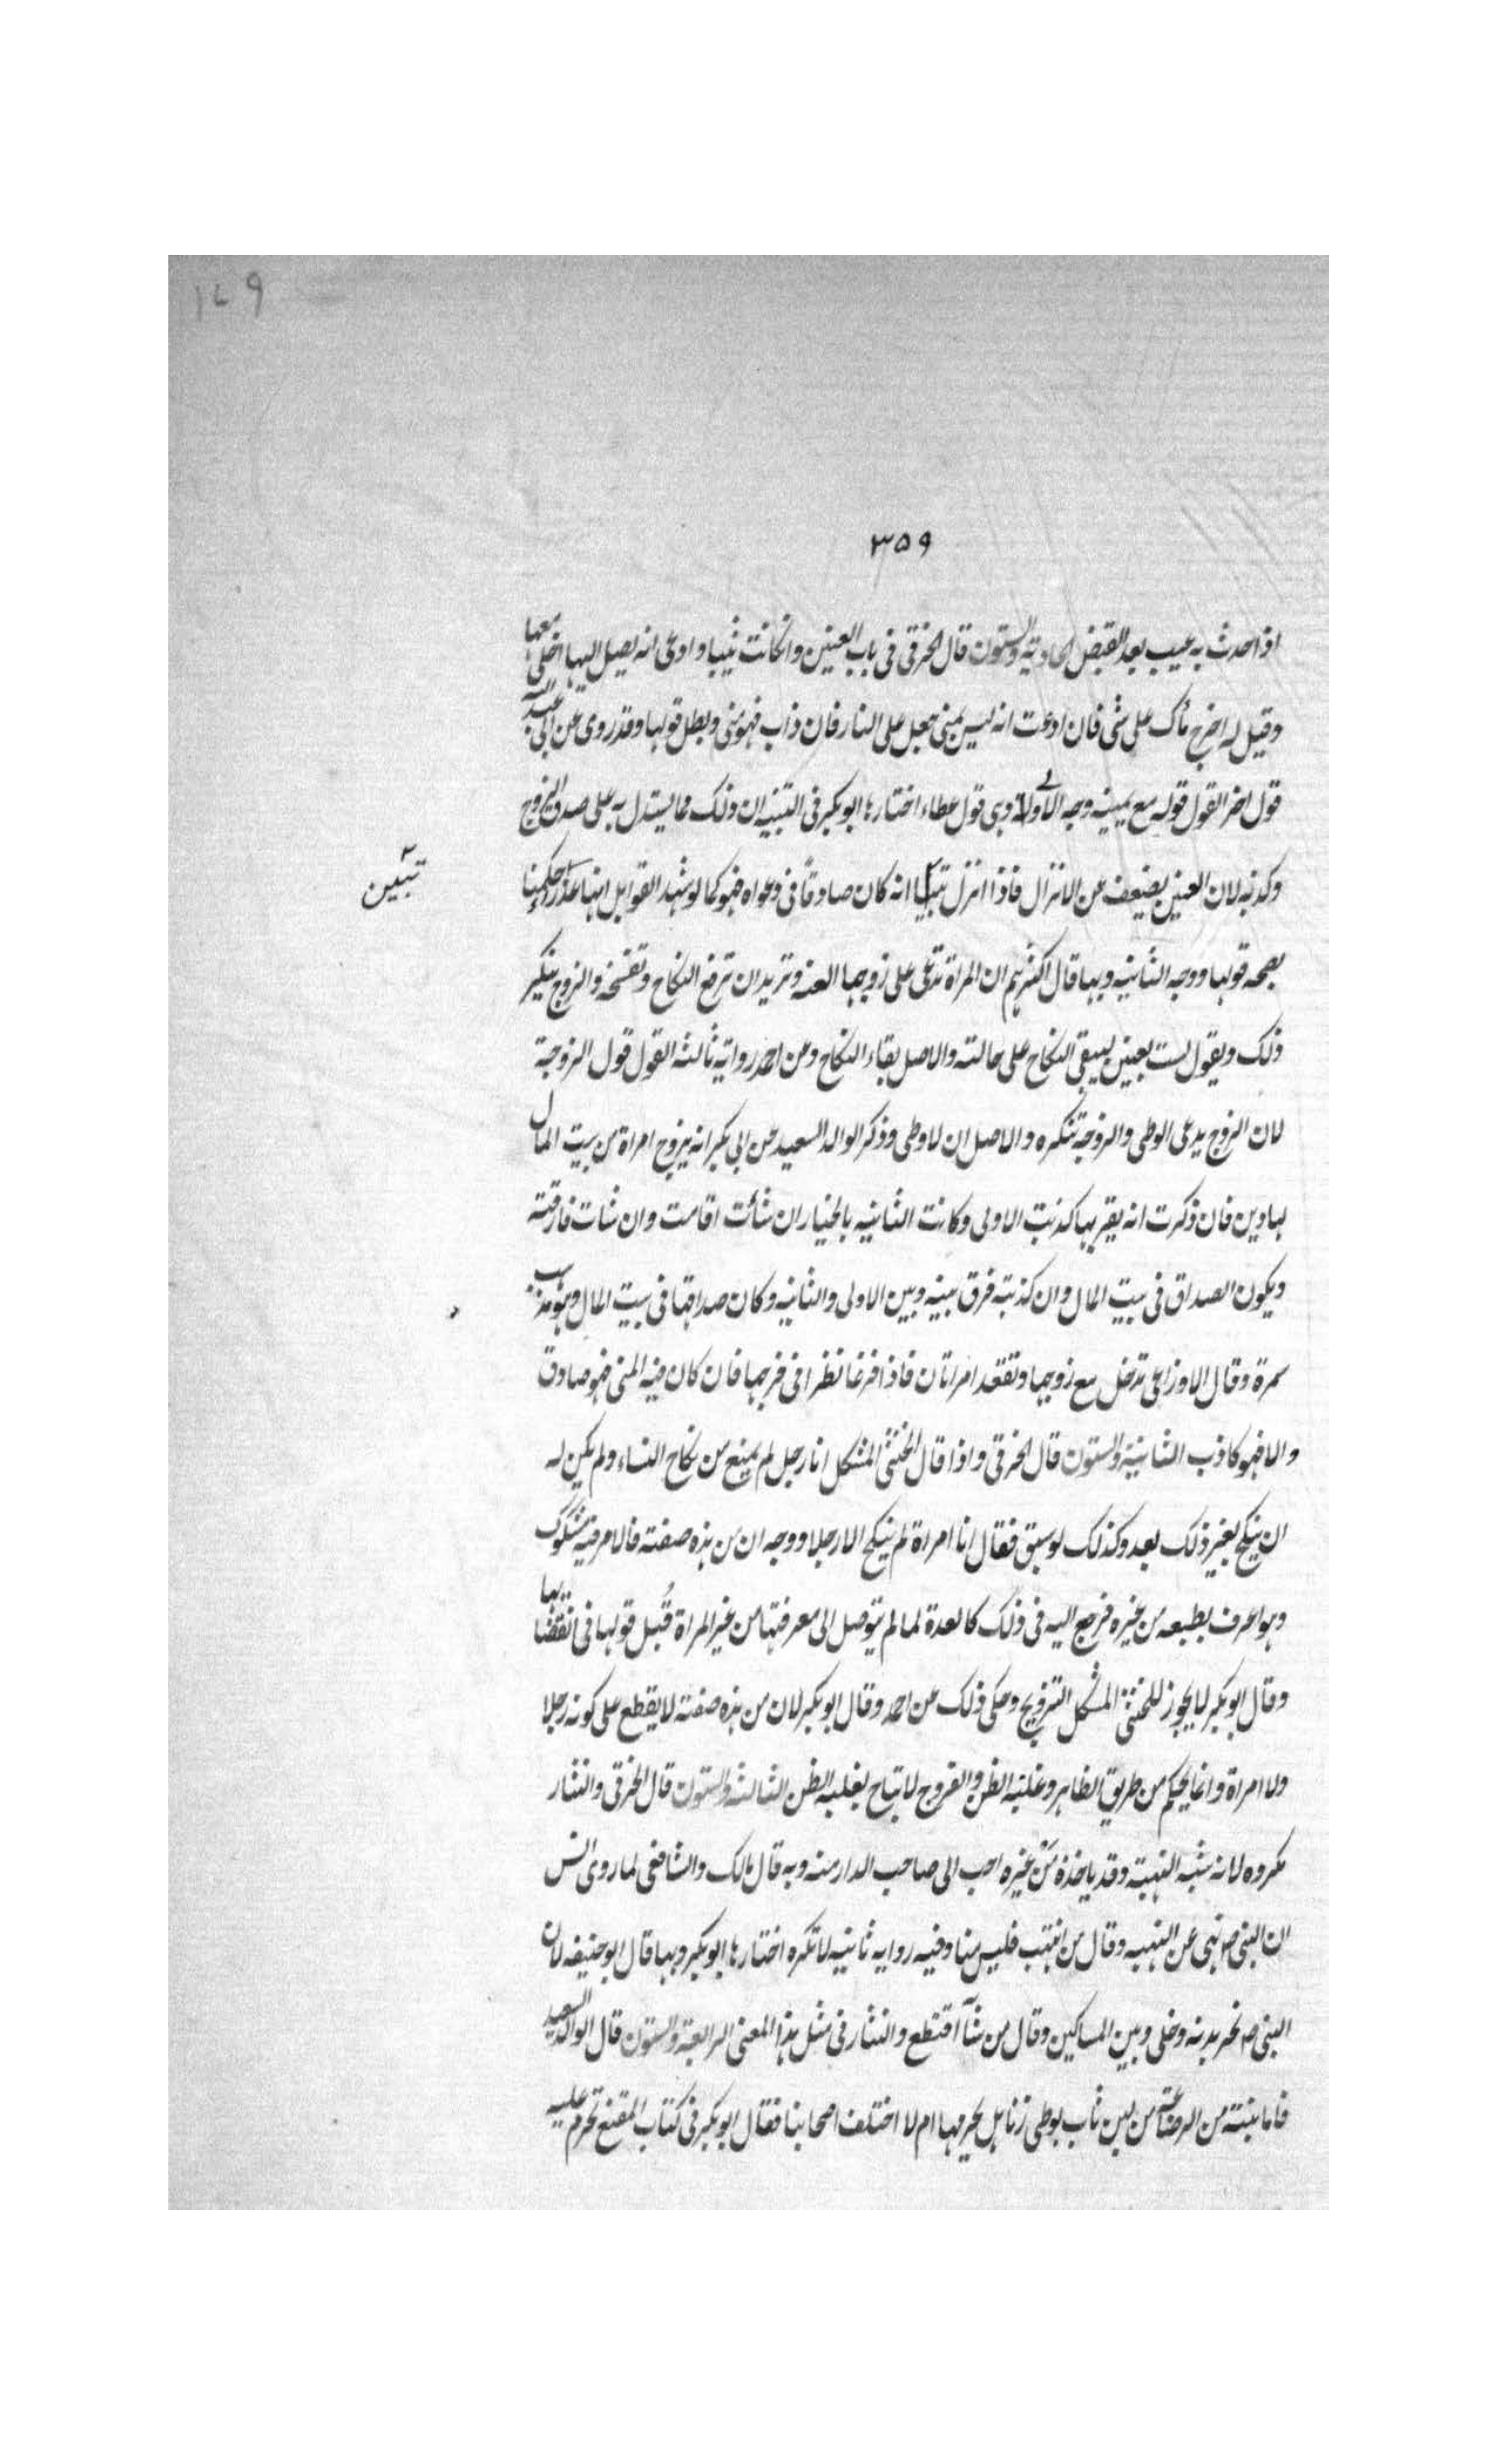 ١٧٩
٣٥٩
اذا حدث به عيب بعد القبض الحادية والستون قال الخرقى فى باب العنين وان كانت ثيبا وادعى انه يصل اليها اخلى معها
وقيل له اخرج ماك على شى فان ادعت انه ليس بمنى جعل على النار فان ذاب فهو منى وبطل قولها وقد روى عن ابى عبد الله
قول اخر القول قوله مع يمينه وجه الاولى وهى قول عطاء اختارها ابو بكر فى التنبيه ان ذلك مما يستدل به على صدق الزوج
وكذبه لان العنين يضعف عن الانزال فاذا انزل تبينا انه كان صادقًا فى دعواه فهو كما لو شهد القوابل انها عذراء حكمنا
تبين
بصحه قولها ووجه الثانيه وبها قال اكثرهم ان المراة تدعى على زوجها العنه وتريد ان ترفع النكاح وتفسخه والزوج ينكر
ذلك ويقول لست بعنين ليبقى النكاح على حالته والاصل بقاء النكاح وعن احمد رواية ثالثه القول قول الزوجة
لان الزوج يدعى الوطى والزوجة تنكره والاصل ان لا وطى وذكر الوالد السعيد عن ابى بكر انه يزوج امراة من بيت المال
لها دين فان ذكرت انه يقربها كذبت الاولى وكانت الثانيه بالخيار ان شائت اقامت وان شات فارقته
ويكون الصداق فى بيت المال وان كذبته فرق بينه وبين الاولى والثانيه وكان صداقها فى بيت المال وهو مذهب
سمرة وقال الاوزاعى تدخل مع زوجها وتقعد امراتان فاذا فرغا نظرا فى فرجها فان كان فيه المنى فهو صادق
والا فهو كاذب الثانية والستون قال الخرقى واذا قال الخنثى المشكل انا رجل لم يمنع من نكاح النساء ولم يكن له
ان ينكح بغير ذلك بعد وكذلك لو سبق فقال انا امراة لم ينكح الا رجلا ووجه ان من هذه صفته فالامر فيه مشكوك
وهو اعرف بطبعه من غيره فرجع اليه فى ذلك كالعدة لما لم يتوصل الى معرفتها من غير المراة قُبل قولها فى انقضائها
وقال ابو بكر لا يجوز للخنثى المشكل التزويج وحكى ذلك عن احمد وقال ابو بكر لان من هذه صفته لا يقطع على كونه رجلا
ولا امراة وانما يحكم من طريق الظاهر وغلبة الظن والفروج لا تباح بغلبه الظن الثالثه والستون قال الخرقى والنثار
مكروه لانه شبه النهبة وقد ياخذه من غيره احب الى صاحب الدار منه وبه قال مالك والشافعى لما روى انس
ان النبى صم نهى عن النهبه وقال من انتهب فليس منا وفيه روايه ثانيه لا تكره اختارها ابو بكر وبها قال ابو حنيفه لان
النبى صم نحر بدنه وخلى وبين المساكين وقال من شآ اقتطع والنثار فى مثل هذا المعنى الرابعة والستون قال الوالد السعيد
فاما بنته من الرضاعة من لبن ثاب بوطى زنا هل يحرمها ام لا اختلف اصحابنا فقال ابو بكر فى كتاب المقنع تحرم عليه